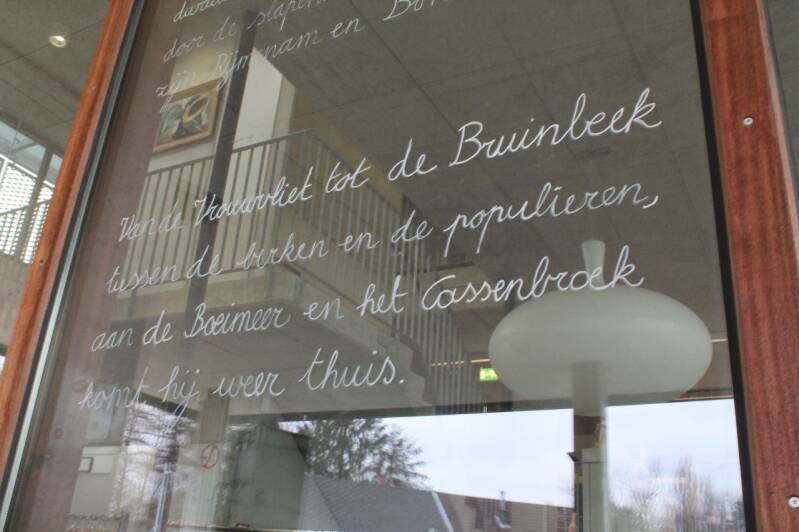 door de slapen
zijn Rijmenam en Bon
Van de Vrouwvliet tot de Bruinbeek
tussen de berken en de populieren,
aan de Boeimeer en het Cassenbroek
komt hij weer thuis.